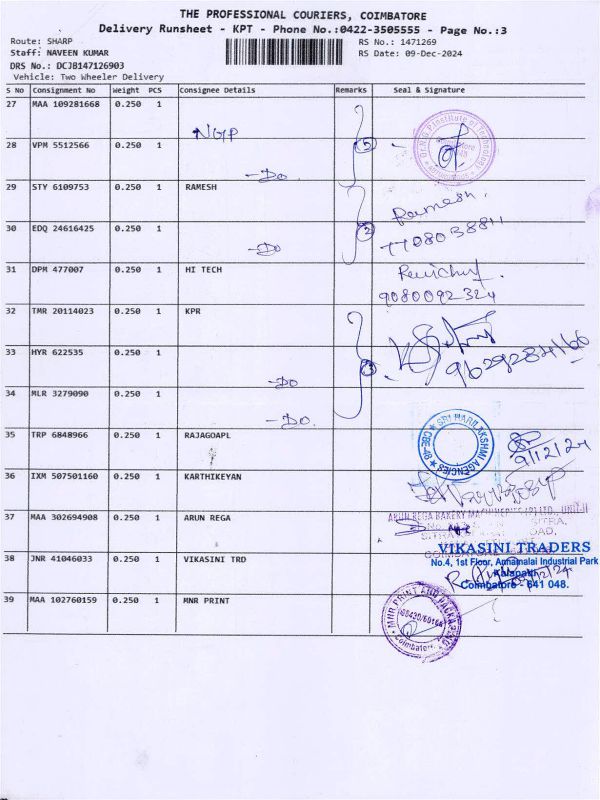 THE PROFESSIONAL COURIERS, COIMBATORE
Delivery Runsheet - KPT - Phone No.:0422-3505555 - Page No.:3
Route: SHARP RS No.: 1471269
Staff: NAVEEN KUMAR RS Date: 09-Dec-2024
DRS No.: DCJB147126903
Vehicle: Two Wheeler Delivery
S No Consignment No Weight PCS Consignee Details Remarks Seal & Signature
27 MAA 109281668 0.250 1
NGP
28 VPM 5512566 0.250 1 5
-Do.
29 STY 6109753 0.250 1 RAMESH
Ramesh.
30 EDQ 24616425 0.250 1 2 7708038811
-Do
31 DPM 477007 0.250 1 HI TECH
9080092324
32 TMR 20114023 0.250 1 KPR
33 HYR 622535 0.250 1 9629284166
-Do 3
34 MLR 3279090 0.250 1
-Do.
35 TRP 6848966 0.250 1 RAJAGOAPL
SRI HARILAKSHMI AGENCIES
CBE-48
9/12/24
36 IXM 507501160 0.250 1 KARTHIKEYAN
37 MAA 302694908 0.250 1 ARUN REGA
ARUN REGA BAKERY MACHINERIES (P) LTD., UNIT-II
38 JNR 41046033 0.250 1 VIKASINI TRD
VIKASINI TRADERS
No.4, 1st Floor, Annamalai Industrial Park
Kalapatti
Coimbatore - 641 048.
39 MAA 102760159 0.250 1 MNR PRINT
MNR PRINT AND PACKAGING
Coimbatore